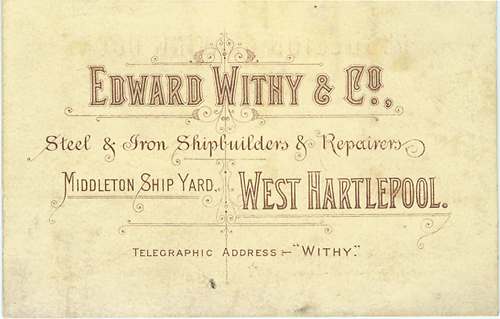 EDWARD WITHY & Co.,
Steel & Iron Shipbuilders & Repairers
MIDDLETON SHIP YARD. WEST HARTLEPOOL.
TELEGRAPHIC ADDRESS:- "WITHY."